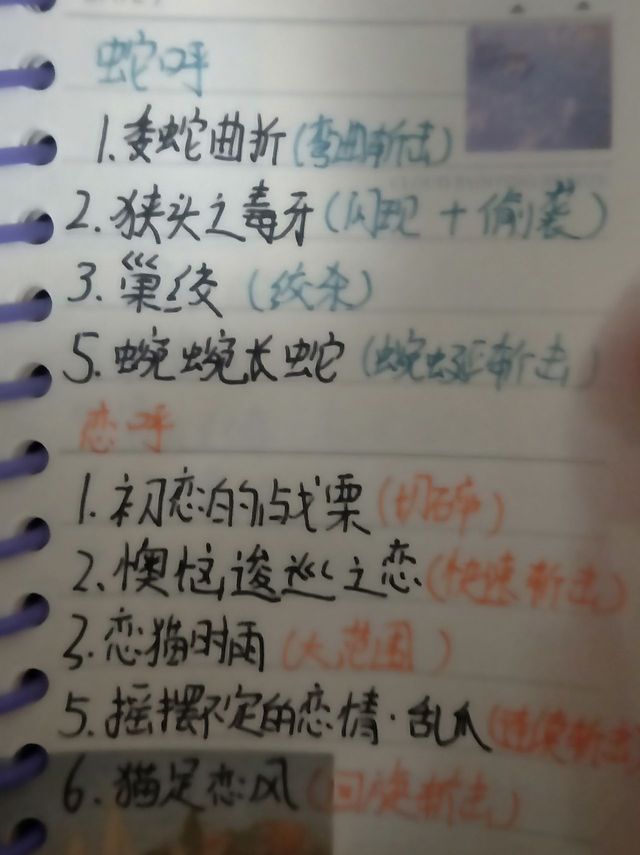 蛇呼
1.委蛇曲折(弯曲斩击)
2.狭头之毒牙(闪现+偷袭)
3.巢绞(绞杀)
5.蜿蜿长蛇(蜿蜒斩击)
恋呼
1.初恋的战栗(切碎)
2.懊恼逡巡之恋(快速斩击)
3.恋猫时雨(大范围)
5.摇摆不定的恋情·乱爪(连续斩击)
6.猫足恋风(回旋斩击)